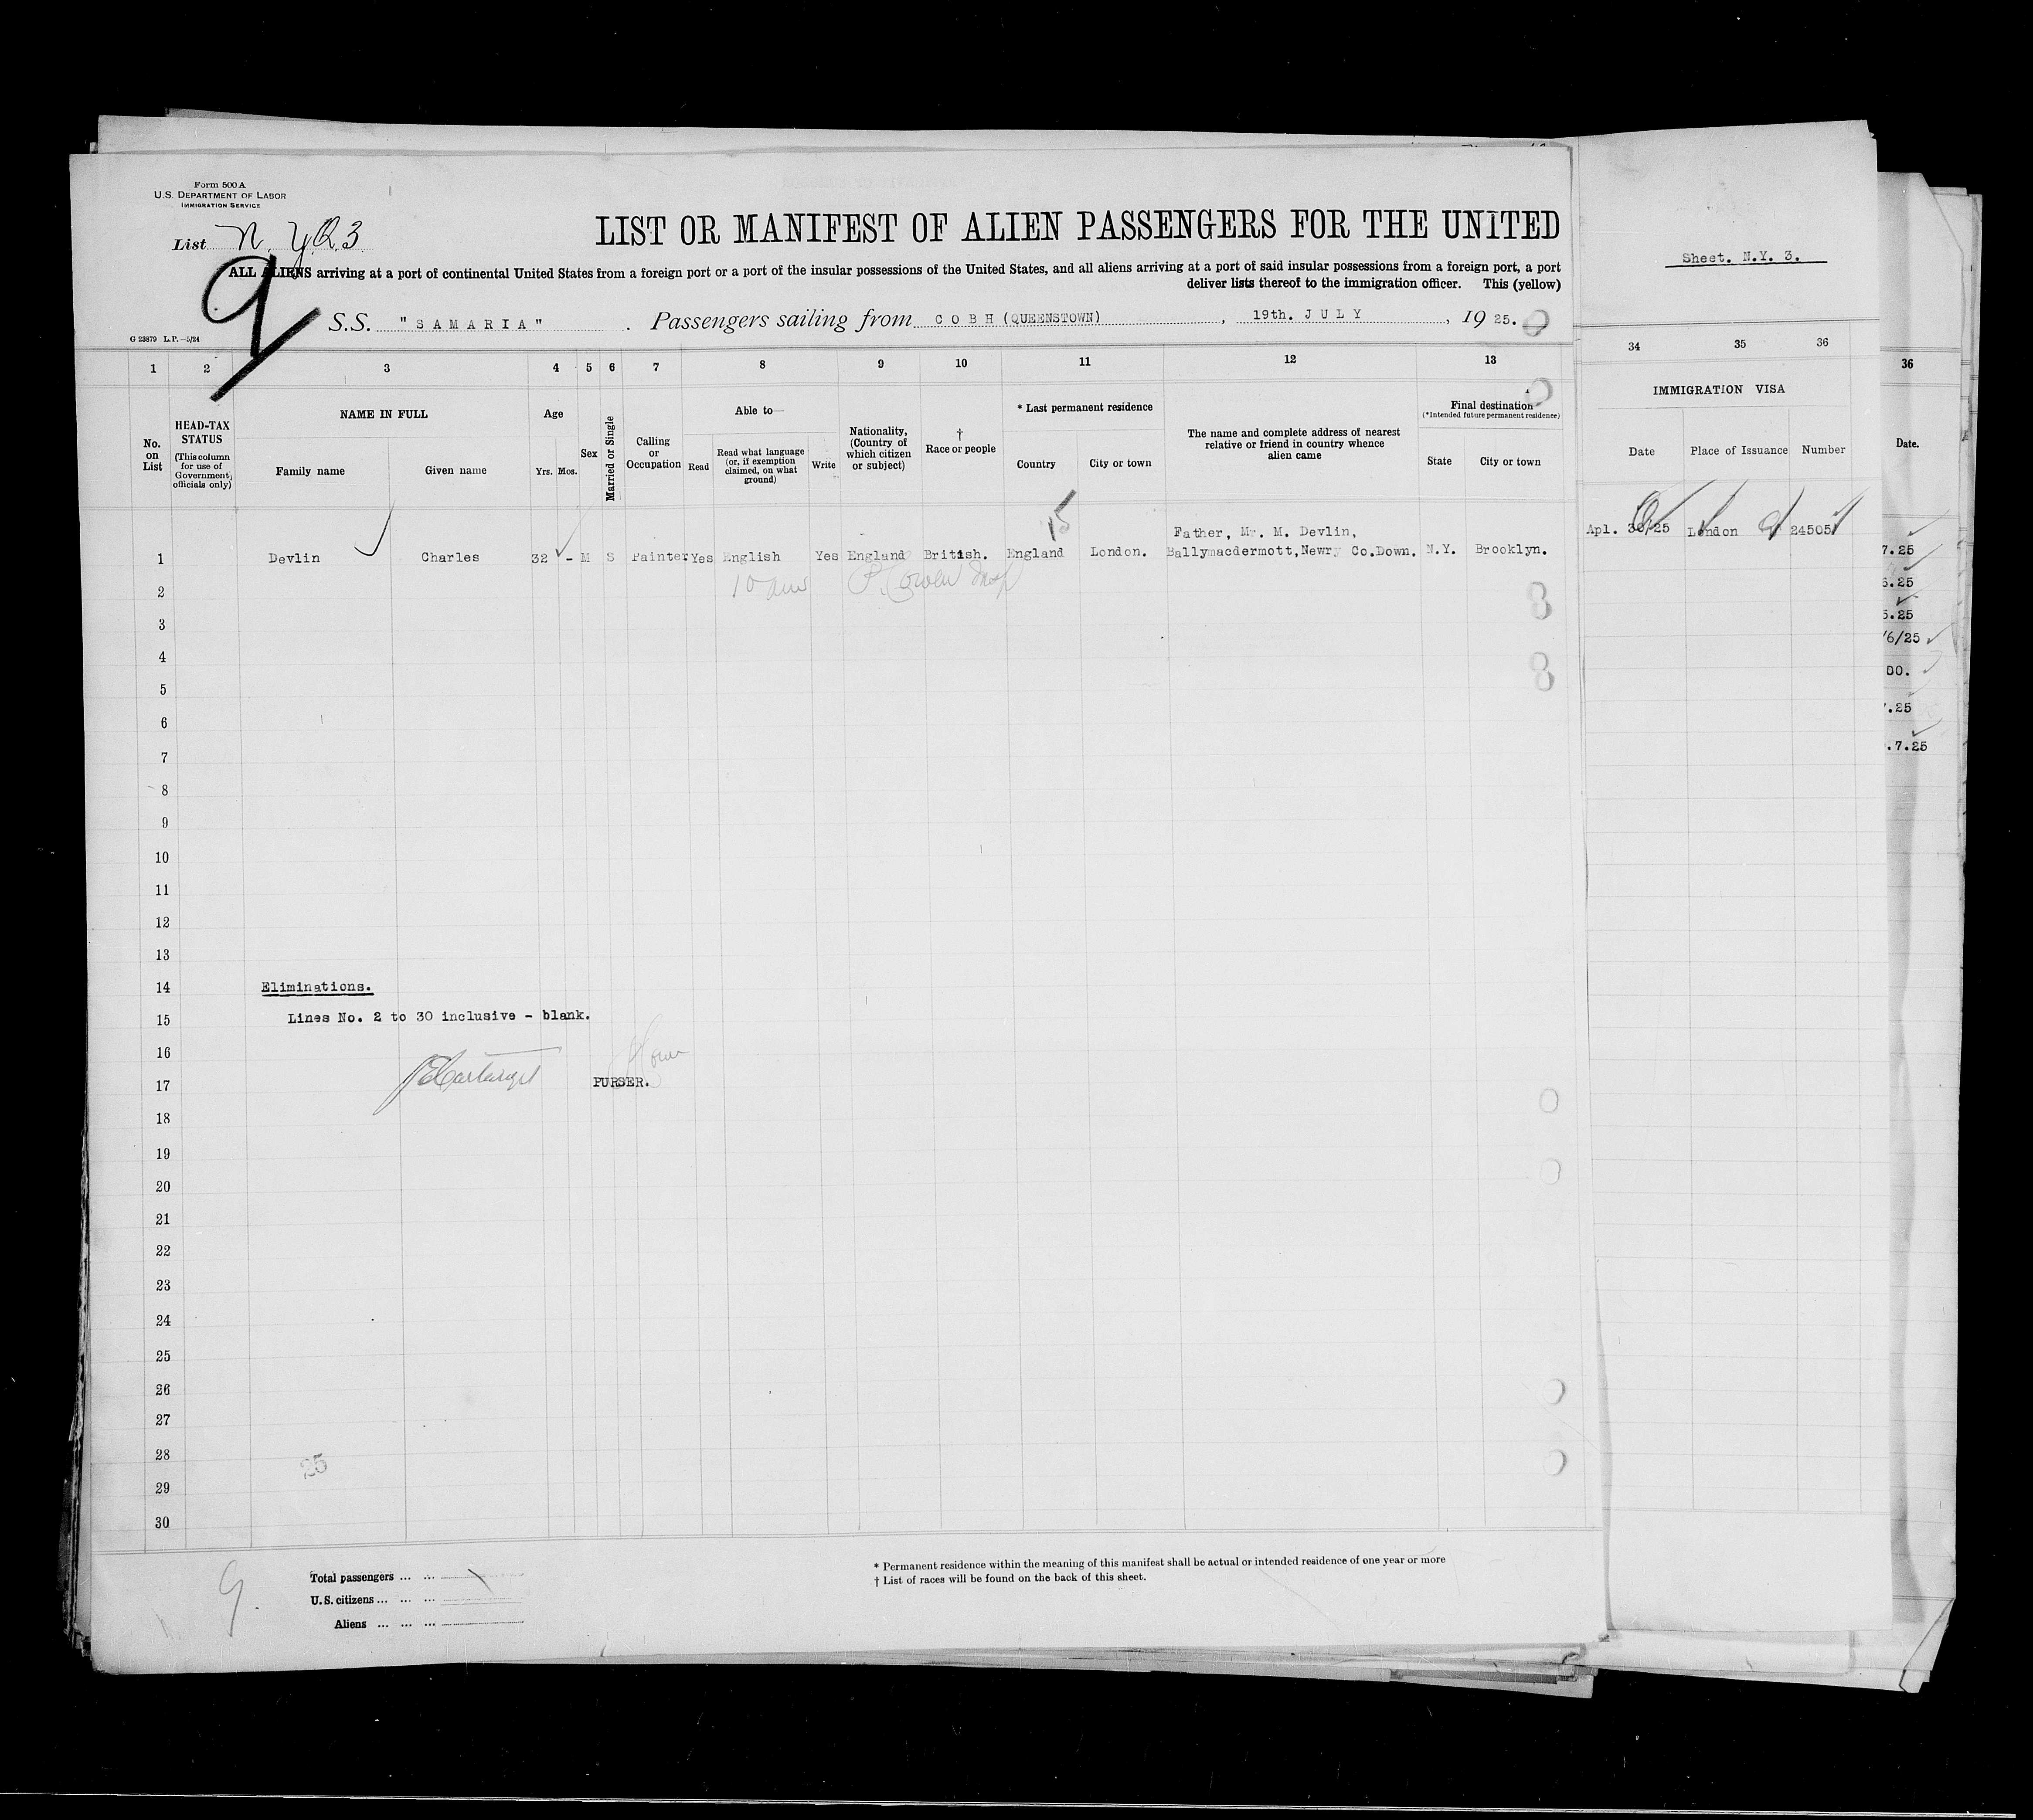 Form 500 A
U.S. DEPARTMENT OF LABOR
IMMIGRATION SERVICE
List N.Y.Q.3
9
LIST OR MANIFEST OF ALIEN PASSENGERS FOR THE UNITED
ALL ALIENS arriving at a port of continental United States from a foreign port or a port of the insular possessions of the United States, and all aliens arriving at a port of said insular possessions from a foreign port, a port
deliver lists thereof to the immigration officer. This (yellow)
S.S. "SAMARIA" . Passengers sailing from COBH (QUEENSTOWN) , 19th. JULY , 19 25.
G 23879 L.P.—5/24
Sheet. N.Y. 3.
1 2 3 4 5 6 7 8 9 10 11 12 13 34 35 36 36
No. on List
HEAD-TAX STATUS
(This column for use of Government officials only)
NAME IN FULL
Family name
Given name
Age
Yrs. Mos.
Sex
Married or Single
Calling or Occupation
Able to—
Read
Read what language (or, if exemption claimed, on what ground)
Write
Nationality, (Country of which citizen or subject)
† Race or people
* Last permanent residence
Country
City or town
The name and complete address of nearest relative or friend in country whence alien came
Final destination
(*Intended future permanent residence)
State
City or town
IMMIGRATION VISA
Date
Place of Issuance
Number
Date.
15
Father, Mr. M. Devlin,
1 Devlin Charles 32 - M S Painter Yes English Yes England British. England London. Ballymacdermott, Newry Co.Down. N.Y. Brooklyn.
Apl. 30/25 London 24505
7.25
5.25
5.25
/6/25
DO.
.25
.7.25
2
3
4
5
6
7
8
9
10
11
12
13
14 Eliminations.
15 Lines No. 2 to 30 inclusive - blank.
16
17 PURSER.
18
19
20
21
22
23
24
25
26
27
28
25
29
30
9.
Total passengers ... ...
U.S. citizens ... ... ...
Aliens ... ... ...
* Permanent residence within the meaning of this manifest shall be actual or intended residence of one year or more
† List of races will be found on the back of this sheet.